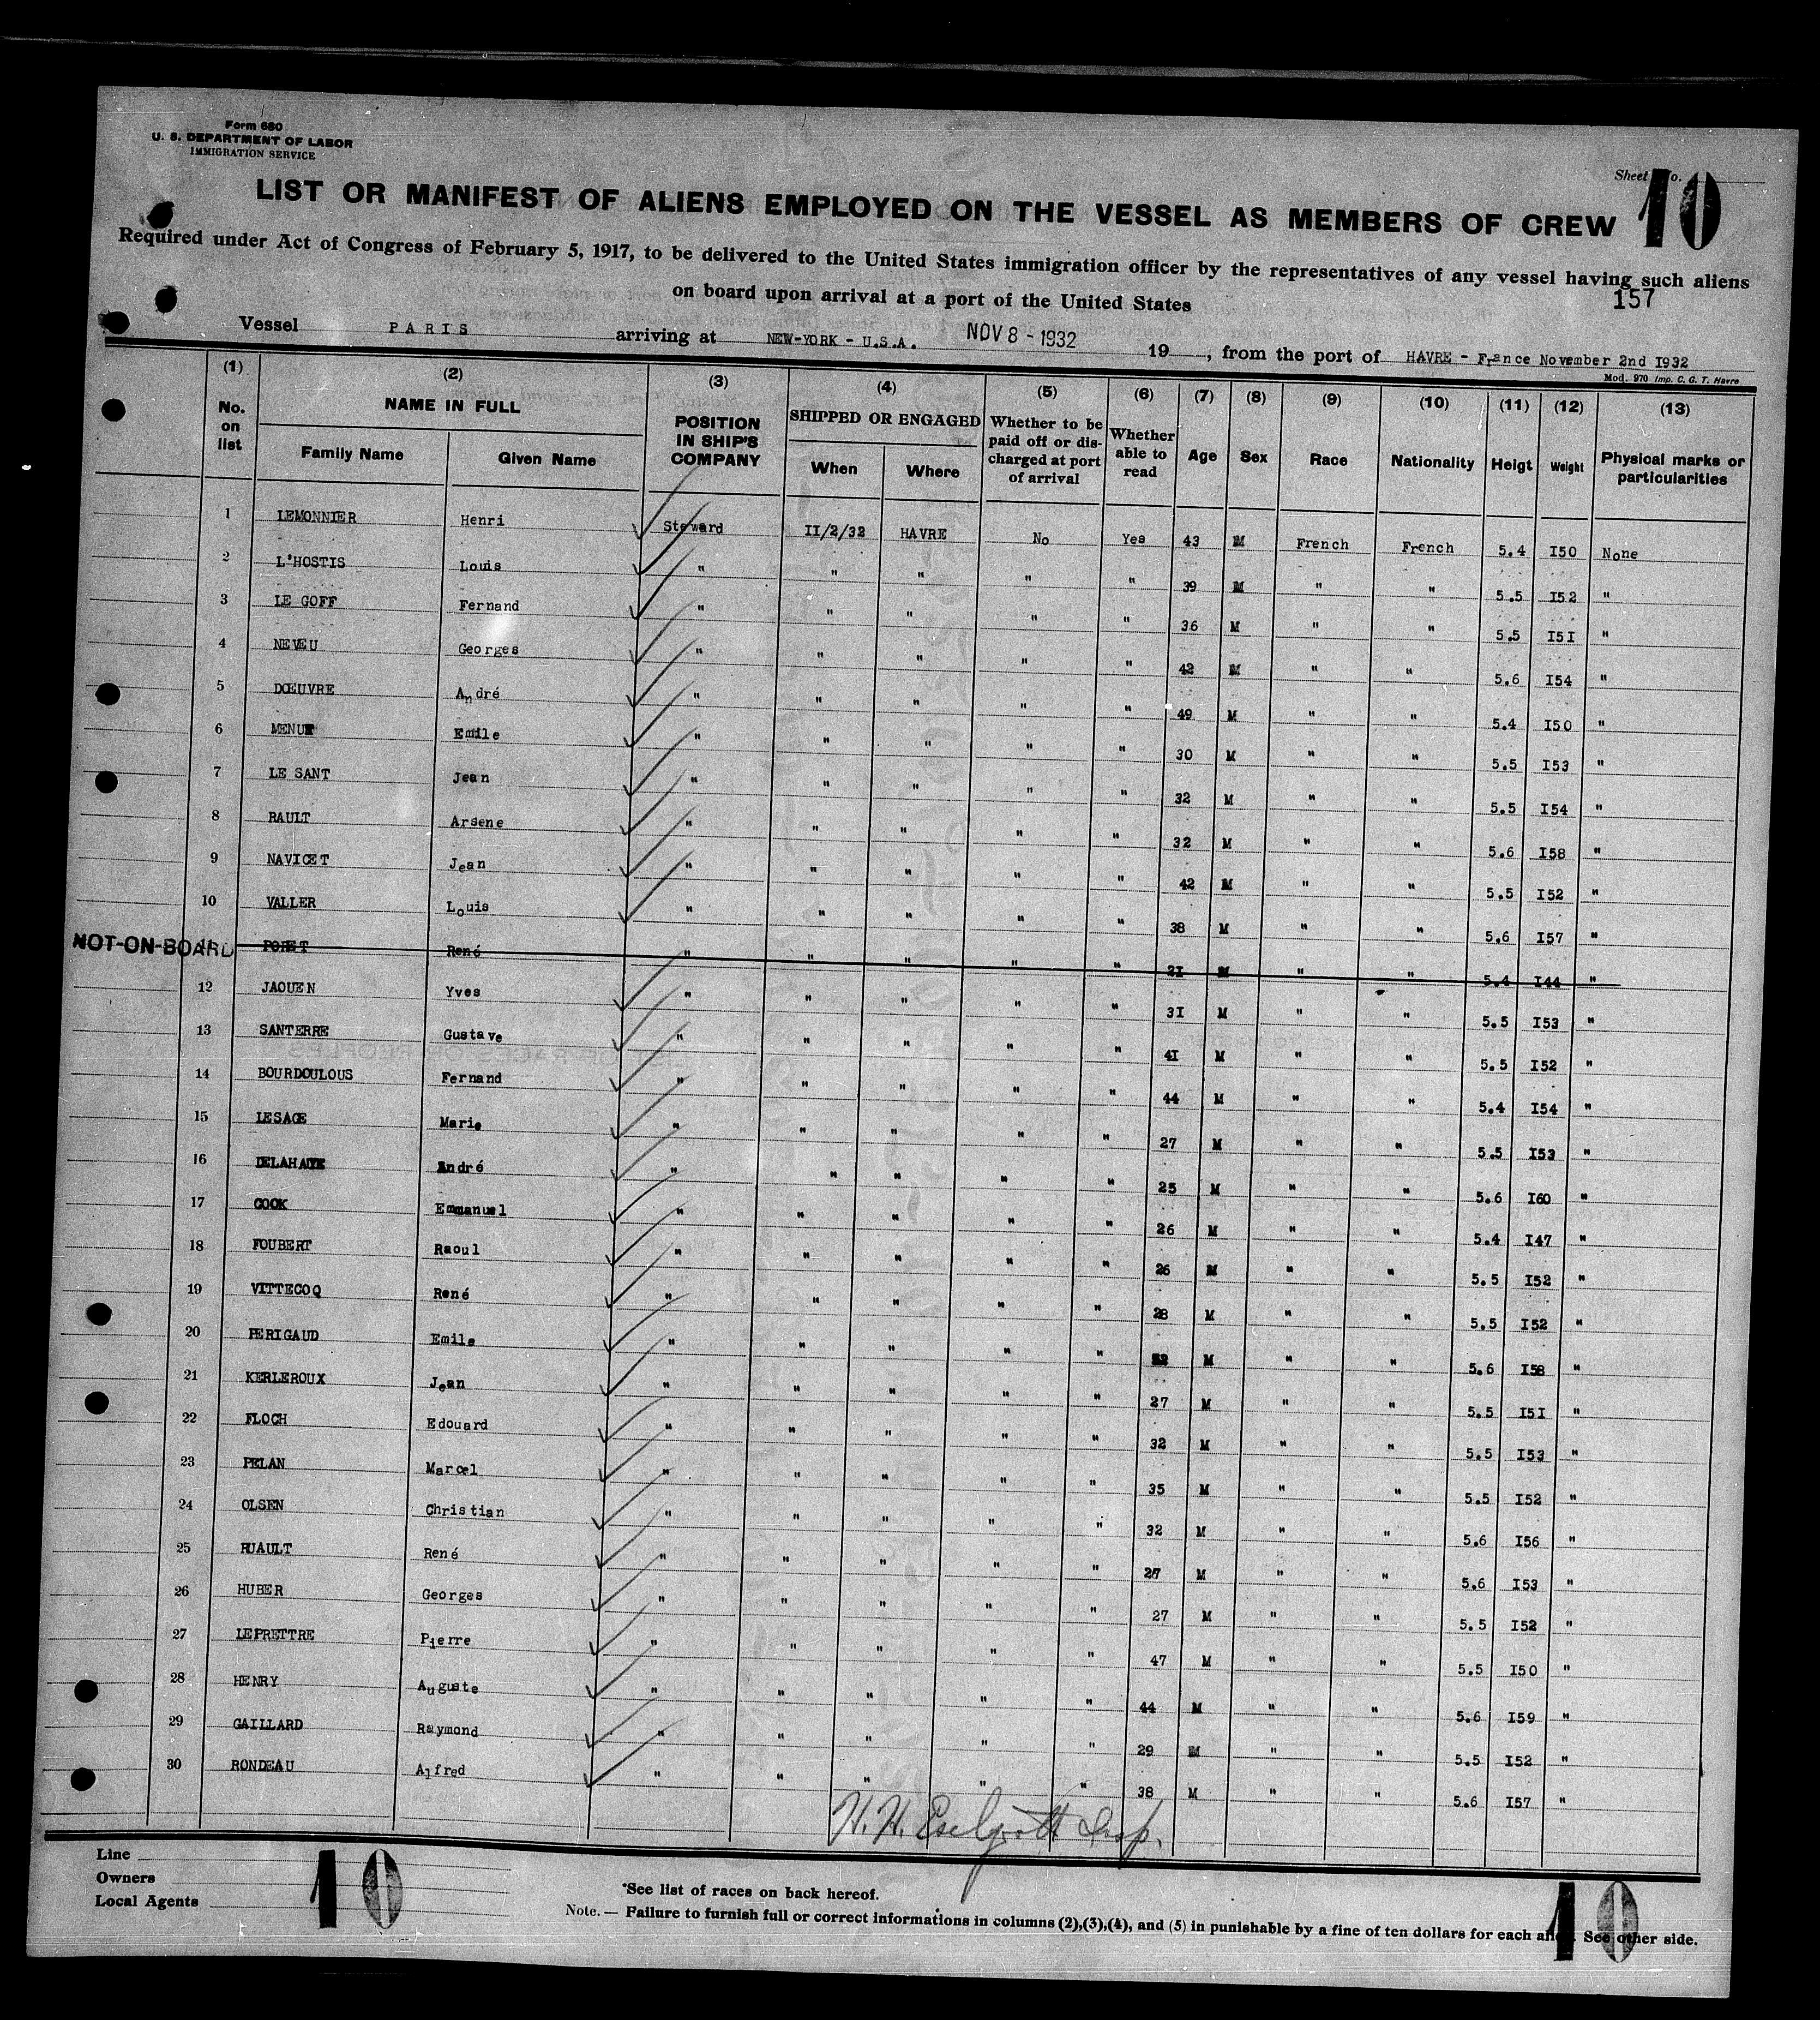 Form 680
U. S. DEPARTMENT OF LABOR
IMMIGRATION SERVICE
Sheet No. 10
LIST OR MANIFEST OF ALIENS EMPLOYED ON THE VESSEL AS MEMBERS OF CREW
Required under Act of Congress of February 5, 1917, to be delivered to the United States immigration officer by the representatives of any vessel having such aliens
on board upon arrival at a port of the United States
157
Vessel PARIS arriving at NEW-YORK - U.S.A. NOV 8 - 1932 19 , from the port of HAVRE - France November 2nd I932
Mod. 970 Imp. C. G. T. Havre
(1) (2) (3) (4) (5) (6) (7) (8) (9) (10) (11) (12) (13)
No. on list NAME IN FULL Family Name Given Name POSITION IN SHIP'S COMPANY SHIPPED OR ENGAGED When Where Whether to be paid off or discharged at port of arrival Whether able to read Age Sex Race Nationality Heigt Weight Physical marks or particularities
1 LEMONNIER Henri Steward II/2/32 HAVRE No Yes 43 M French French 5.4 I50 None
2 L'HOSTIS Louis " " " " " 39 M " " 5.5 I52 "
3 LE GOFF Fernand " " " " " 36 M " " 5.5 I5I "
4 NEVEU Georges " " " " " 42 M " " 5.6 I54 "
5 DŒUVRE André " " " " " 49 M " " 5.4 I50 "
6 MENUT Emile " " " " " 30 M " " 5.5 I53 "
7 LE SANT Jean " " " " " 32 M " " 5.5 I54 "
8 RAULT Arsene " " " " " 32 M " " 5.6 I58 "
9 NAVICET Jean " " " " " 42 M " " 5.5 I52 "
10 VALLER Louis " " " " " 38 M " " 5.6 I57 "
NOT-ON-BOARD 11 PORET René " " " " " 2I M " " 5.4 I44 "
12 JAOUEN Yves " " " " " 3I M " " 5.5 I53 "
13 SANTERRE Gustave " " " " " 4I M " " 5.5 I52 "
14 BOURDOULOUS Fernand " " " " " 44 M " " 5.4 I54 "
15 LESAGE Marie " " " " " 27 M " " 5.5 I53 "
16 DELAHAYE André " " " " " 25 M " " 5.6 I60 "
17 COOK Emmanuel " " " " " 26 M " " 5.4 I47 "
18 FOUBERT Raoul " " " " " 26 M " " 5.5 I52 "
19 VITTECOQ René " " " " " 28 M " " 5.5 I52 "
20 PERIGAUD Emile " " " " " M " " 5.6 I58 "
21 KERLEROUX Jean " " " " " 27 M " " 5.5 I5I "
22 FLOCH Edouard " " " " " 32 M " " 5.5 I53 "
23 PELAN Marcel " " " " " 35 M " " 5.5 I52 "
24 OLSEN Christian " " " " " 32 M " " 5.6 I56 "
25 RUAULT René " " " " " 27 M " " 5.6 I53 "
26 HUBER Georges " " " " " 27 M " " 5.5 I52 "
27 LEPRETTRE Pierre " " " " " 47 M " " 5.5 I50 "
28 HENRY Auguste " " " " " 44 M " " 5.6 I59 "
29 GAILLARD Raymond " " " " " 29 M " " 5.5 I52 "
30 RONDEAU Alfred " " " " " 38 M " " 5.6 I57 "
H. H. Insp.
Line
Owners
Local Agents
10
*See list of races on back hereof.
Note. — Failure to furnish full or correct informations in columns (2),(3),(4), and (5) in punishable by a fine of ten dollars for each alien. See other side.
10